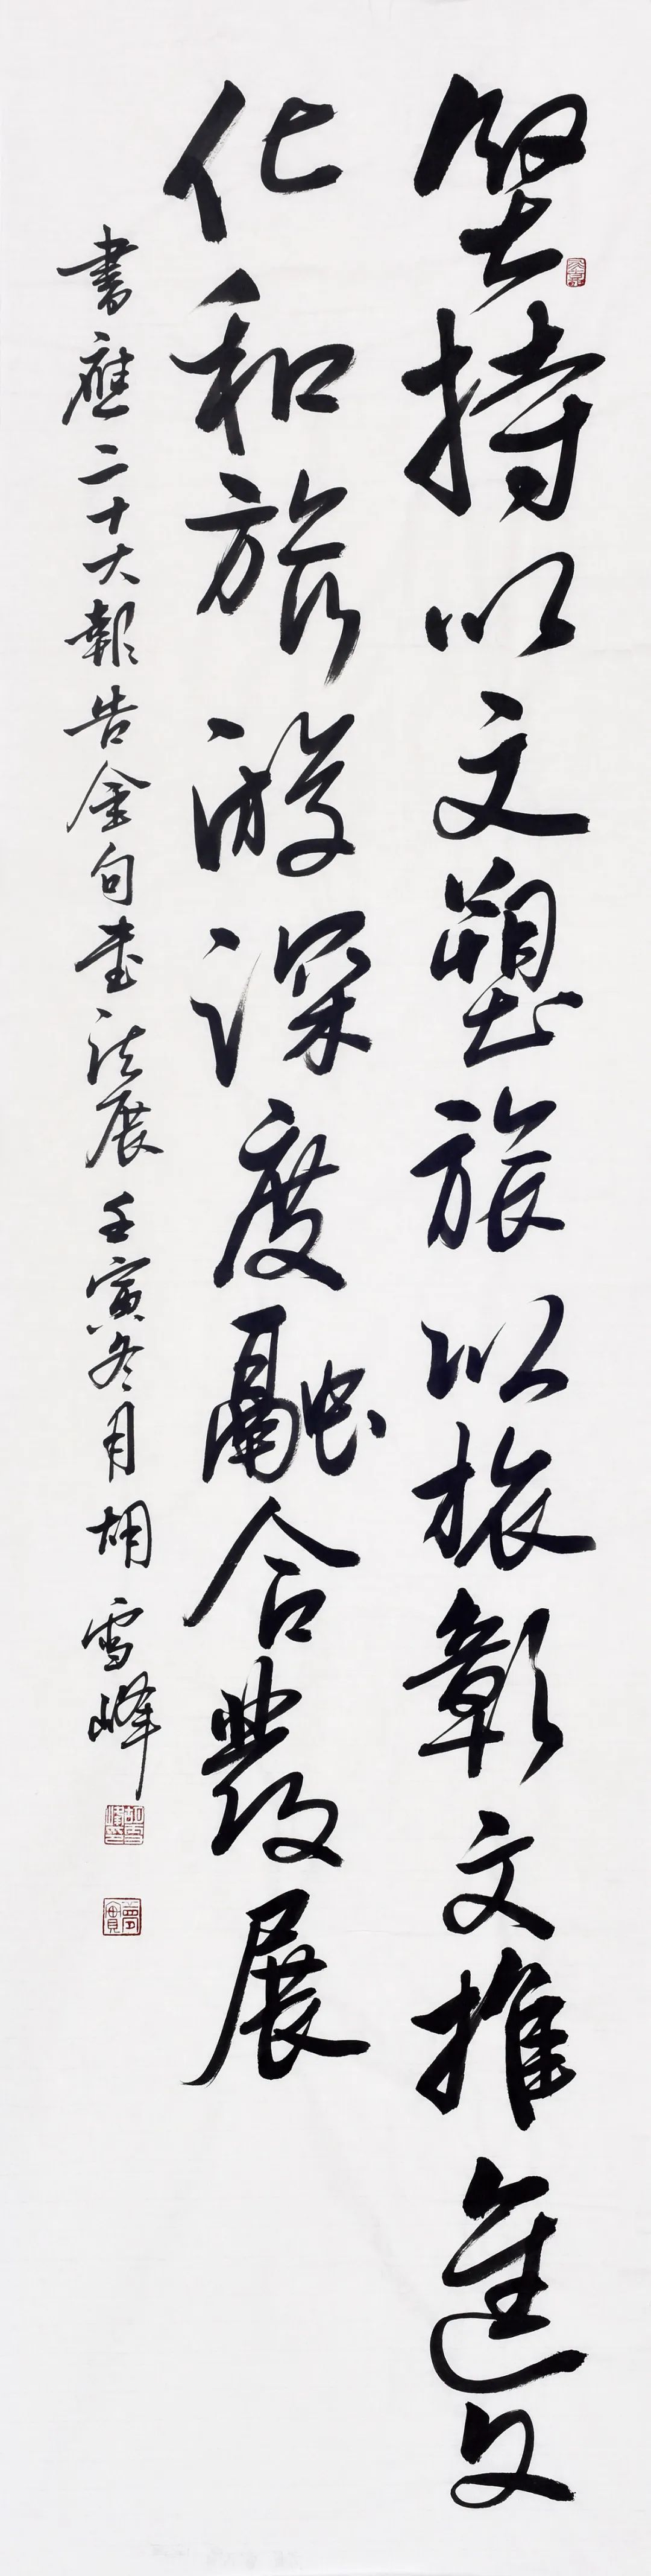 堅持以文塑旅以旅彰文推進文
化和旅游深度融合發展
書應二十大報告金句書法展壬寅冬月胡雪峰
胡雪峰印